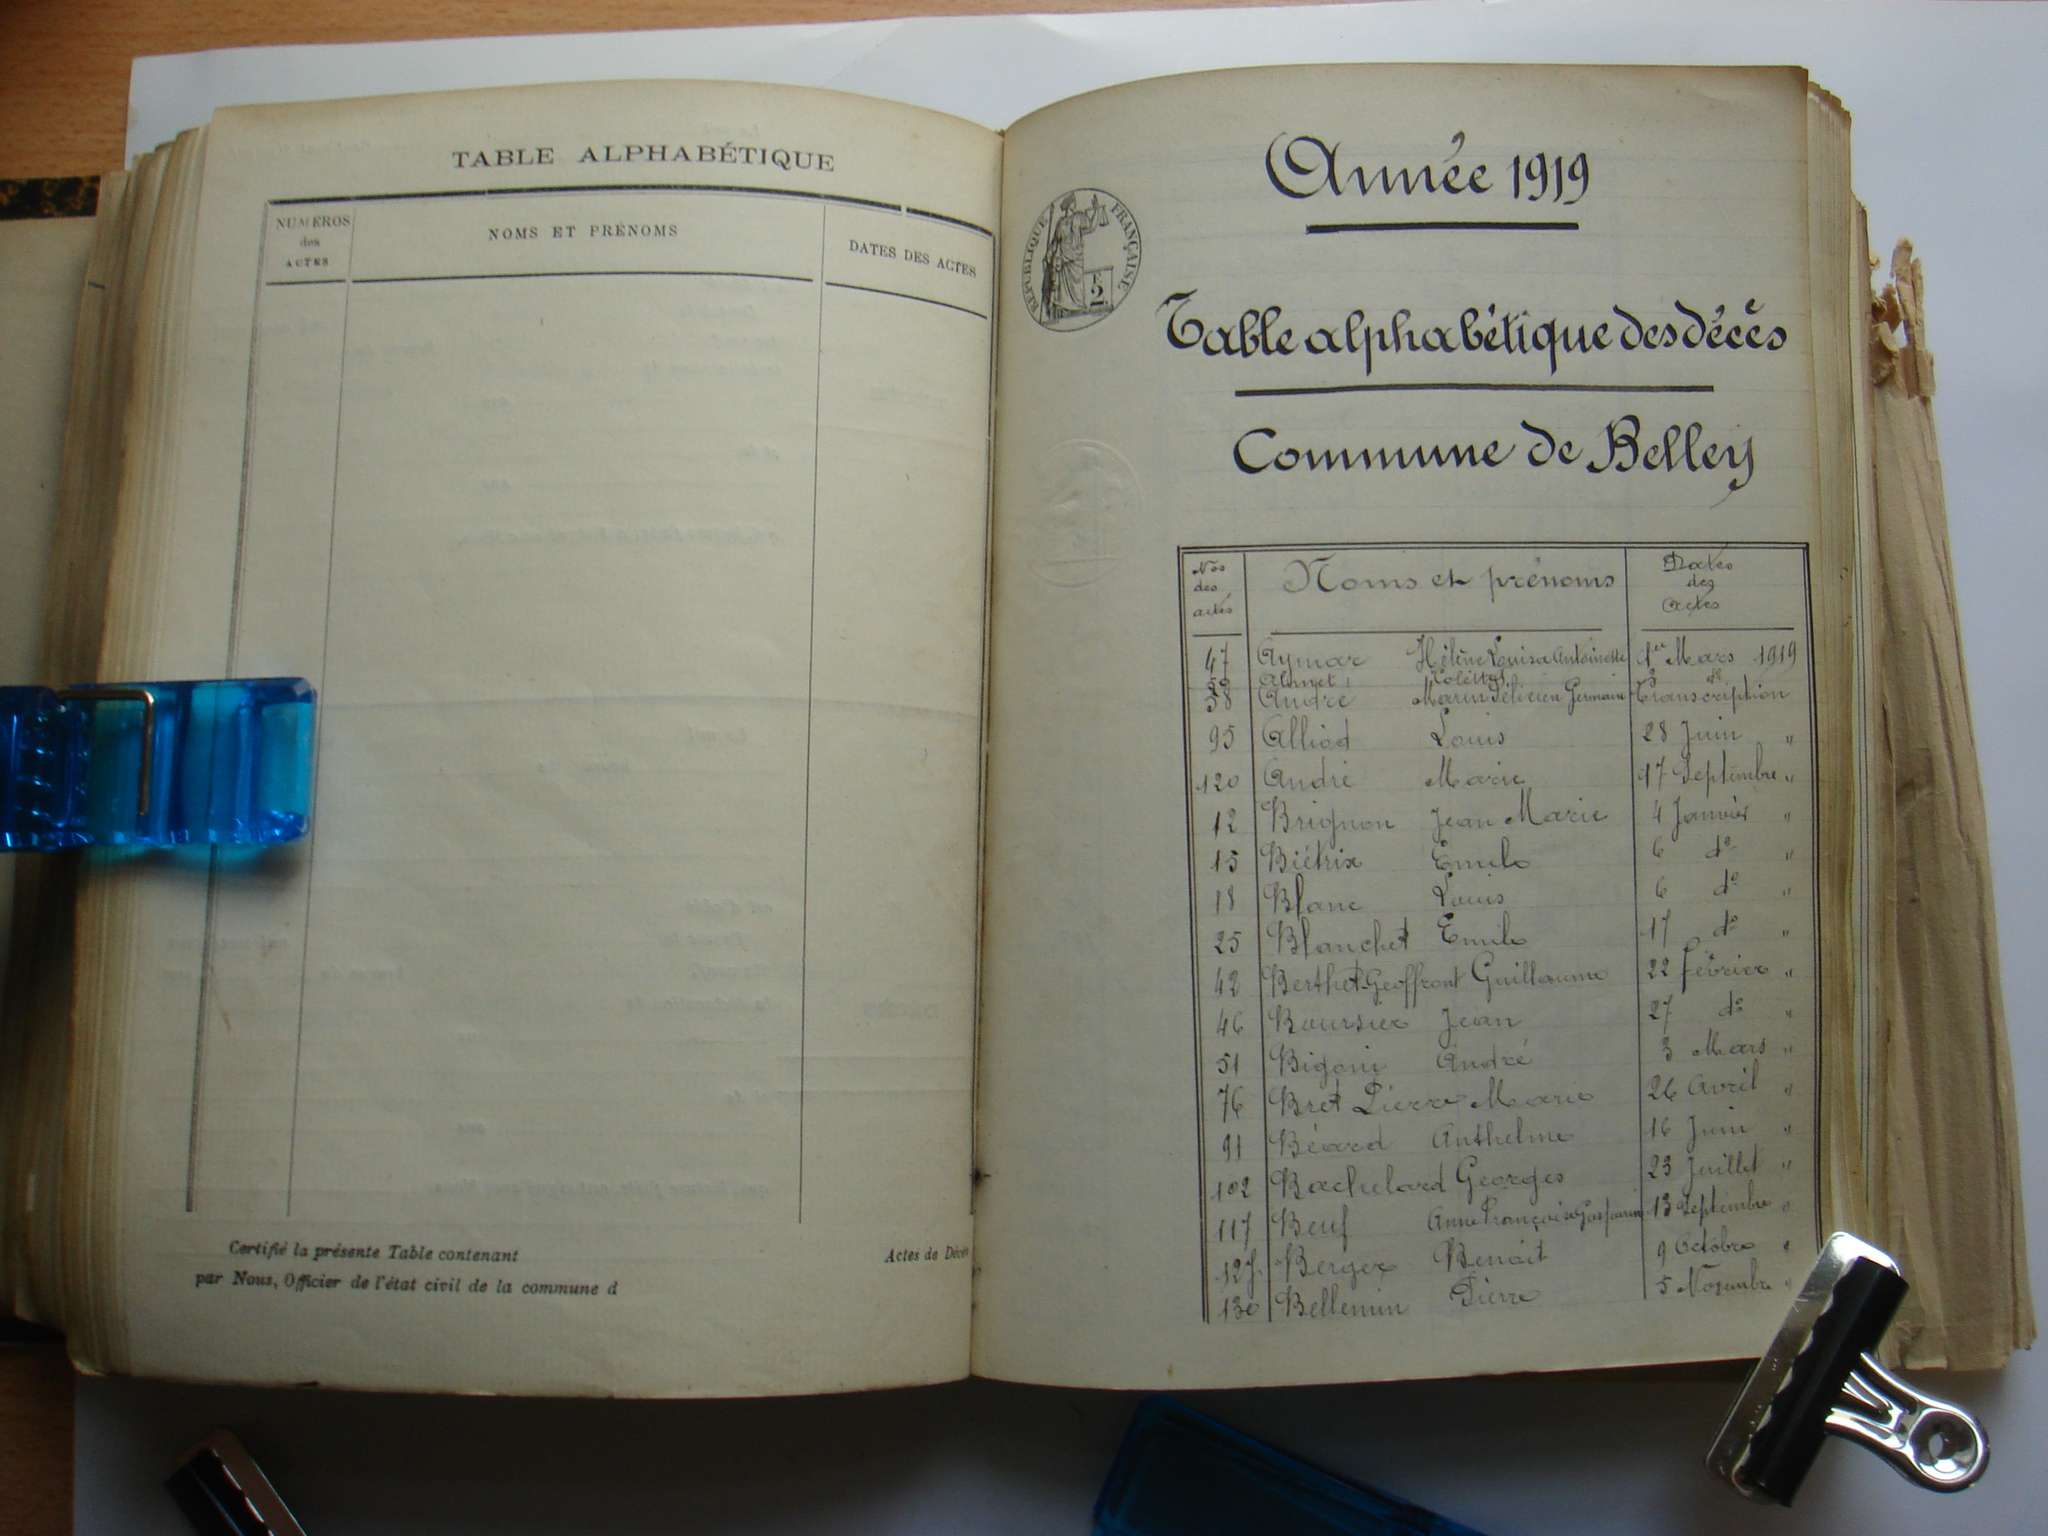 TABLE ALPHABÉTIQUE
NUMÉROS des ACTES
NOMS ET PRÉNOMS
DATES DES ACTES
Certifié la présente Table contenant
Actes de Décès
par Nous, Officier de l'état civil de la commune d
Année 1919
RÉPUBLIQUE FRANÇAISE
Table alphabétique des décès
Commune de Belley
Nos des actes
Noms et prénoms
Dates des Actes
47 Aymar Hélène Louisa Antoinette 1er Mars 1919
Colette 3 do
58 André Marin Félicien Germain Transcription
95 Alliod Louis 28 Juin "
120 André Marie 17 Septembre "
12 Brignon Jean Marie 4 Janvier "
15 Biétrix Emile 6 do "
18 Blanc Louis 6 do "
25 Blanchet Emile 17 do "
42 Berthet-Geoffront Guillaume 22 février "
46 Boursier Jean 27 do "
51 Bigoni André 3 Mars "
76 Bret Pierre Marie 26 Avril "
91 Béard Anthelme 16 Juin "
102 Bachelard Georges 23 Juillet "
117 Beuf Anne Françoise 13 Septembre "
127 Berger Benoit 9 Octobre "
130 Bellemin Pierre 5 Novembre "